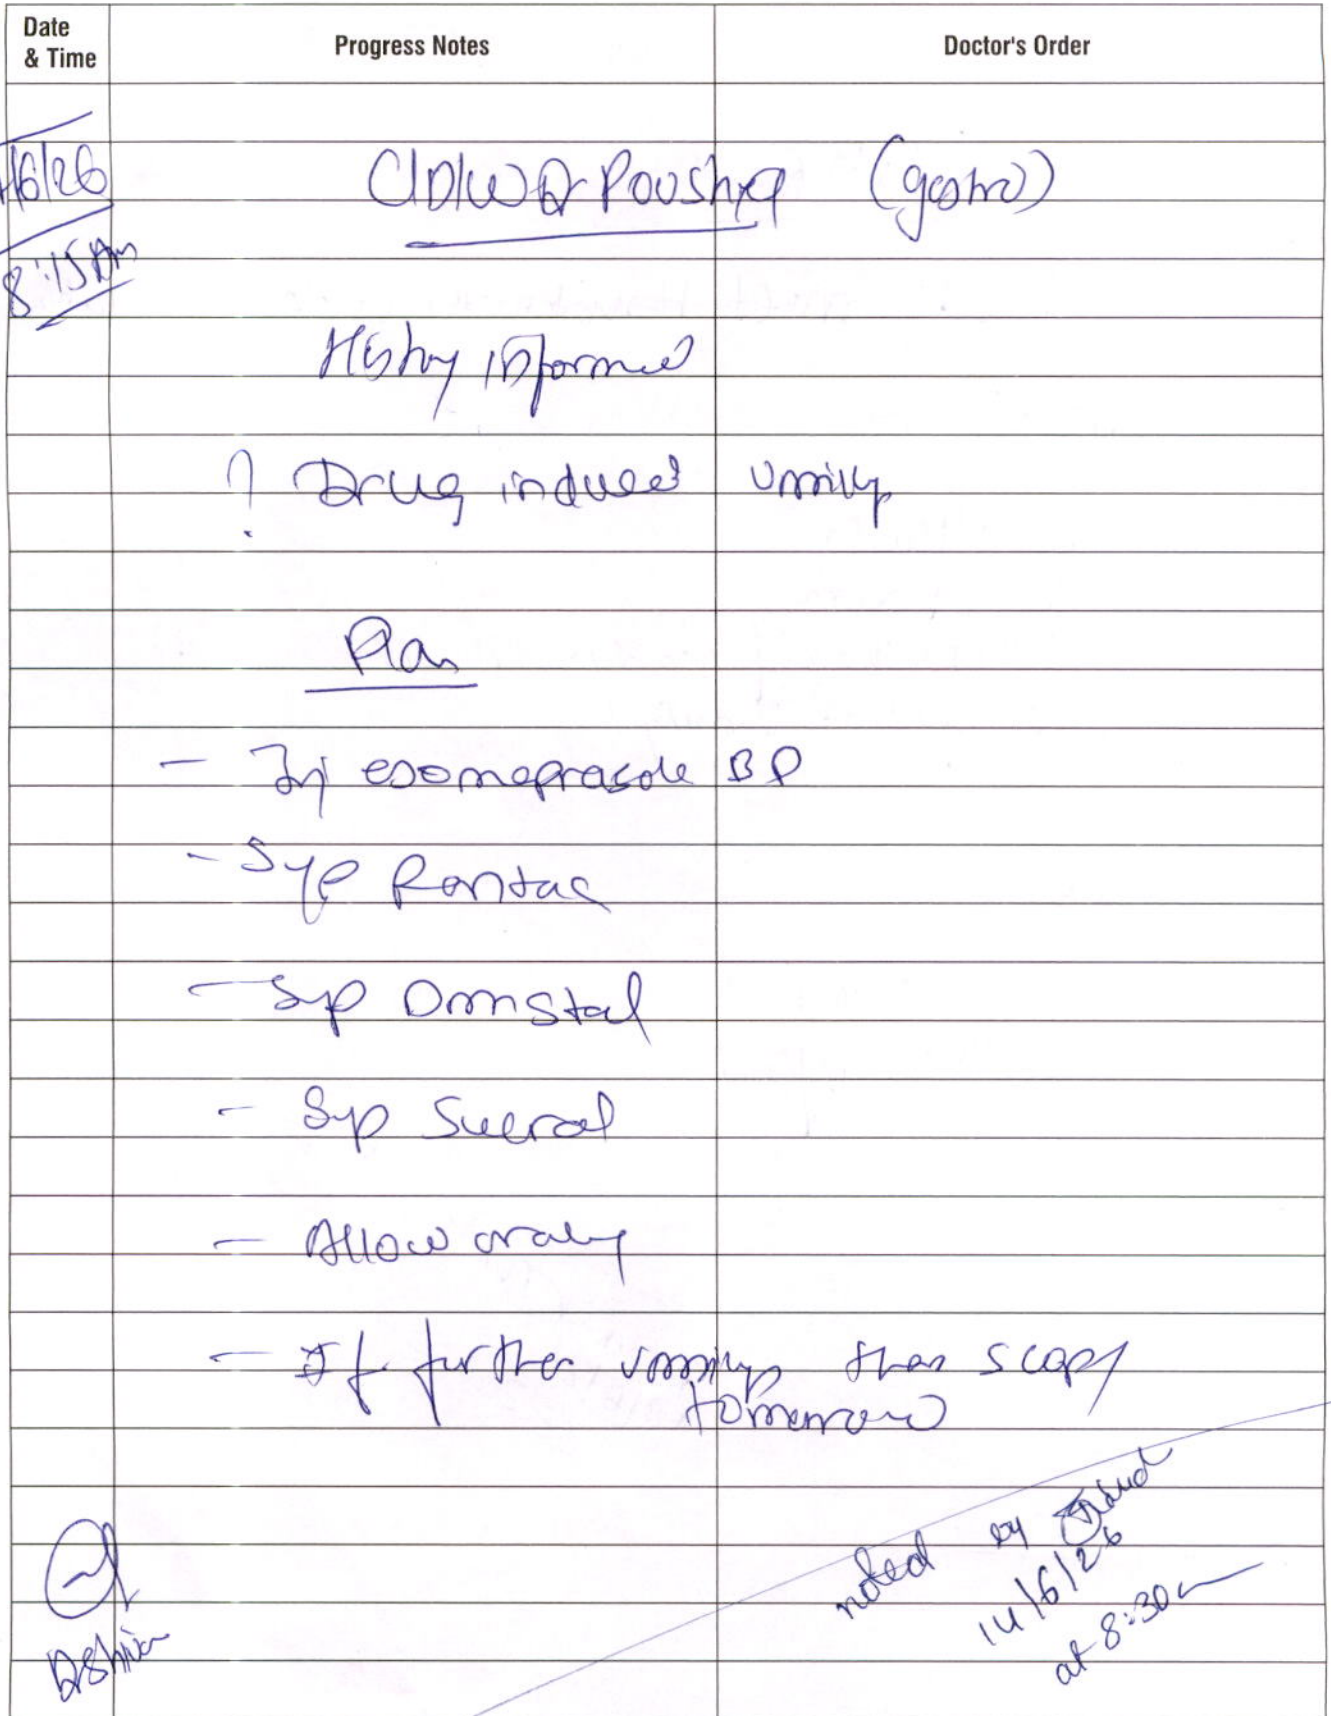 Date & Time Progress Notes Doctor's Order
/6/26 C/D/W Dr Poushya (gastro)
8:15 Am
History informed
? Drug induced vomiting
Plan
- Inj esomeprasole BD
- Syp Rantac
- Syp Domstal
- Syp Sucral
- Allow oraly
- If further vomitings then scopy
tomorrow
noted by
14/6/26
at 8:30